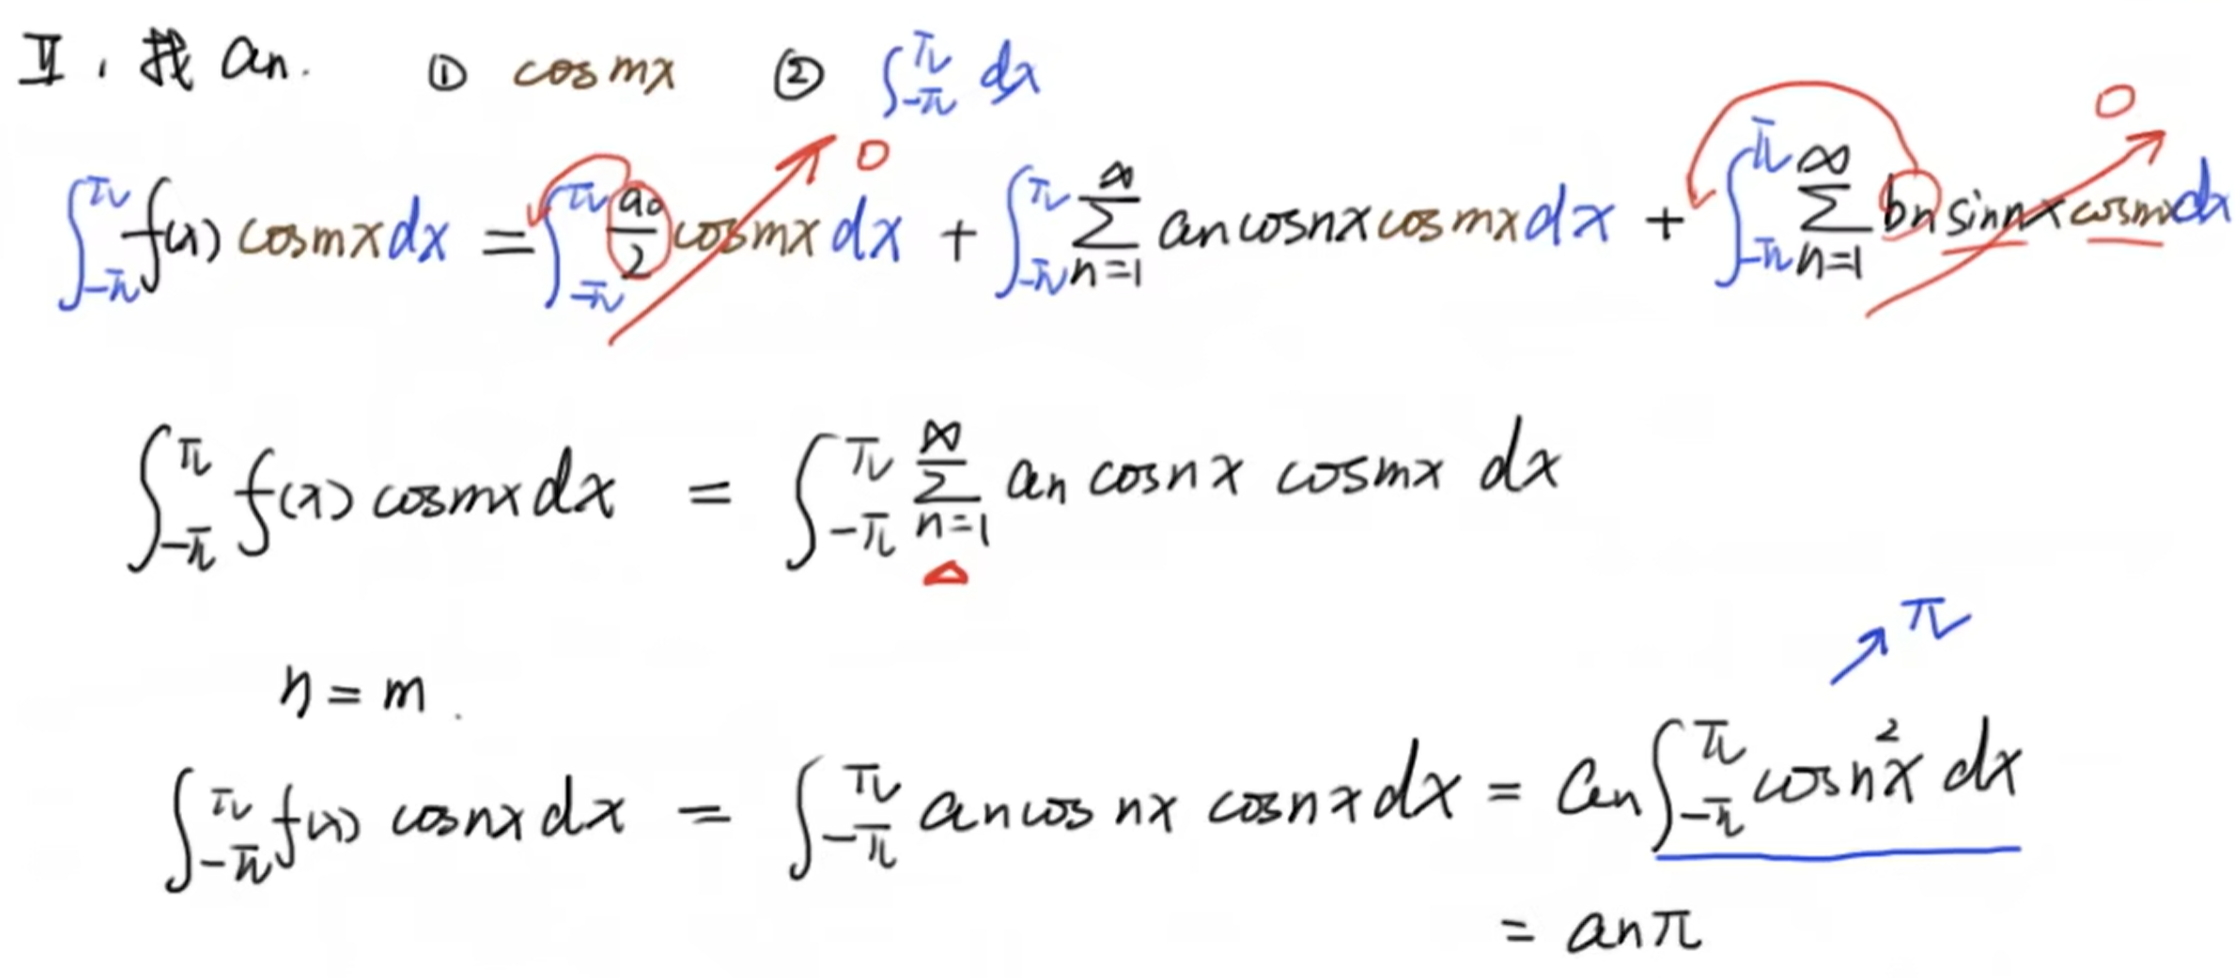 Ⅱ、找 an. ① cosmx ② ∫_{-π}^{π} dx
∫_{-π}^{π} f(x) cosmx dx = ∫_{-π}^{π} a₀/2 cosmx dx + ∫_{-π}^{π} ∑_{n=1}^{∞} an cosnx cosmx dx + ∫_{-π}^{π} ∑_{n=1}^{∞} bn sinnx cosmx dx 0 0
∫_{-π}^{π} f(x) cosmx dx = ∫_{-π}^{π} ∑_{n=1}^{∞} an cosnx cosmx dx
n = m .
π
∫_{-π}^{π} f(x) cosnx dx = ∫_{-π}^{π} an cos nx cosnx dx = an ∫_{-π}^{π} cos nx² dx
= anπ